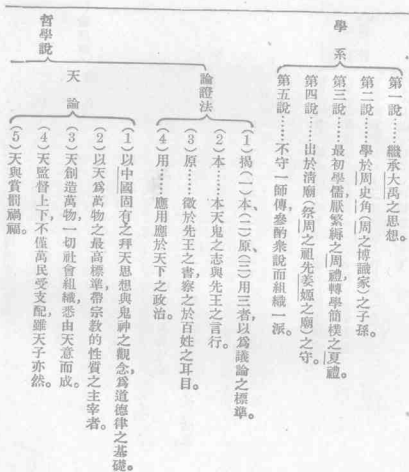 學系
第一說……繼承大禹之思想。
第二說……學於周史角(周之博識家)之子孫。
第三說……最初學儒厭繁縟之周禮轉學簡樸之夏禮。
第四說……出於清廟(祭周之祖先姜嫄之廟)之守。
第五說……不守一師傳,參酌衆說而組織一派。
哲學說
論證法
(1)揭(一)本,(二)原,(三)用三者,以爲議論之標準。
(2)本……本天鬼之志與先王之言行。
(3)原……徵於先王之書察之於百姓之耳目。
(4)用……應用應於天下之政治。
天論
(1)以中國固有之拜天思想與鬼神之觀念,爲道德律之基礎。
(2)以天爲萬物之最高標準,帶宗教的性質之主宰者。
(3)天創造萬物,一切社會組織,悉由天意而成。
(4)天監督上下,不僅萬民受支配,雖天子亦然。
(5)天與賞罰禍福。